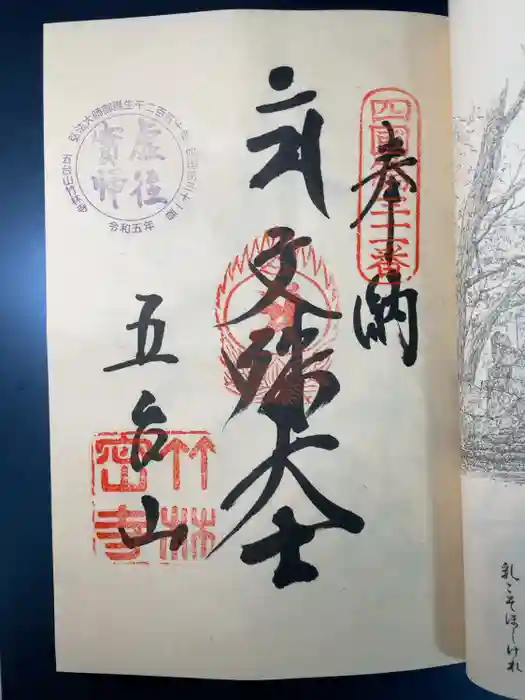 奉納
四國第三十一番
文殊大士
五台山
竹林
密寺
弘法大師御誕生千二百五十年
虚往
實歸
五台山竹林寺
令和五年
乳こそほしけれ